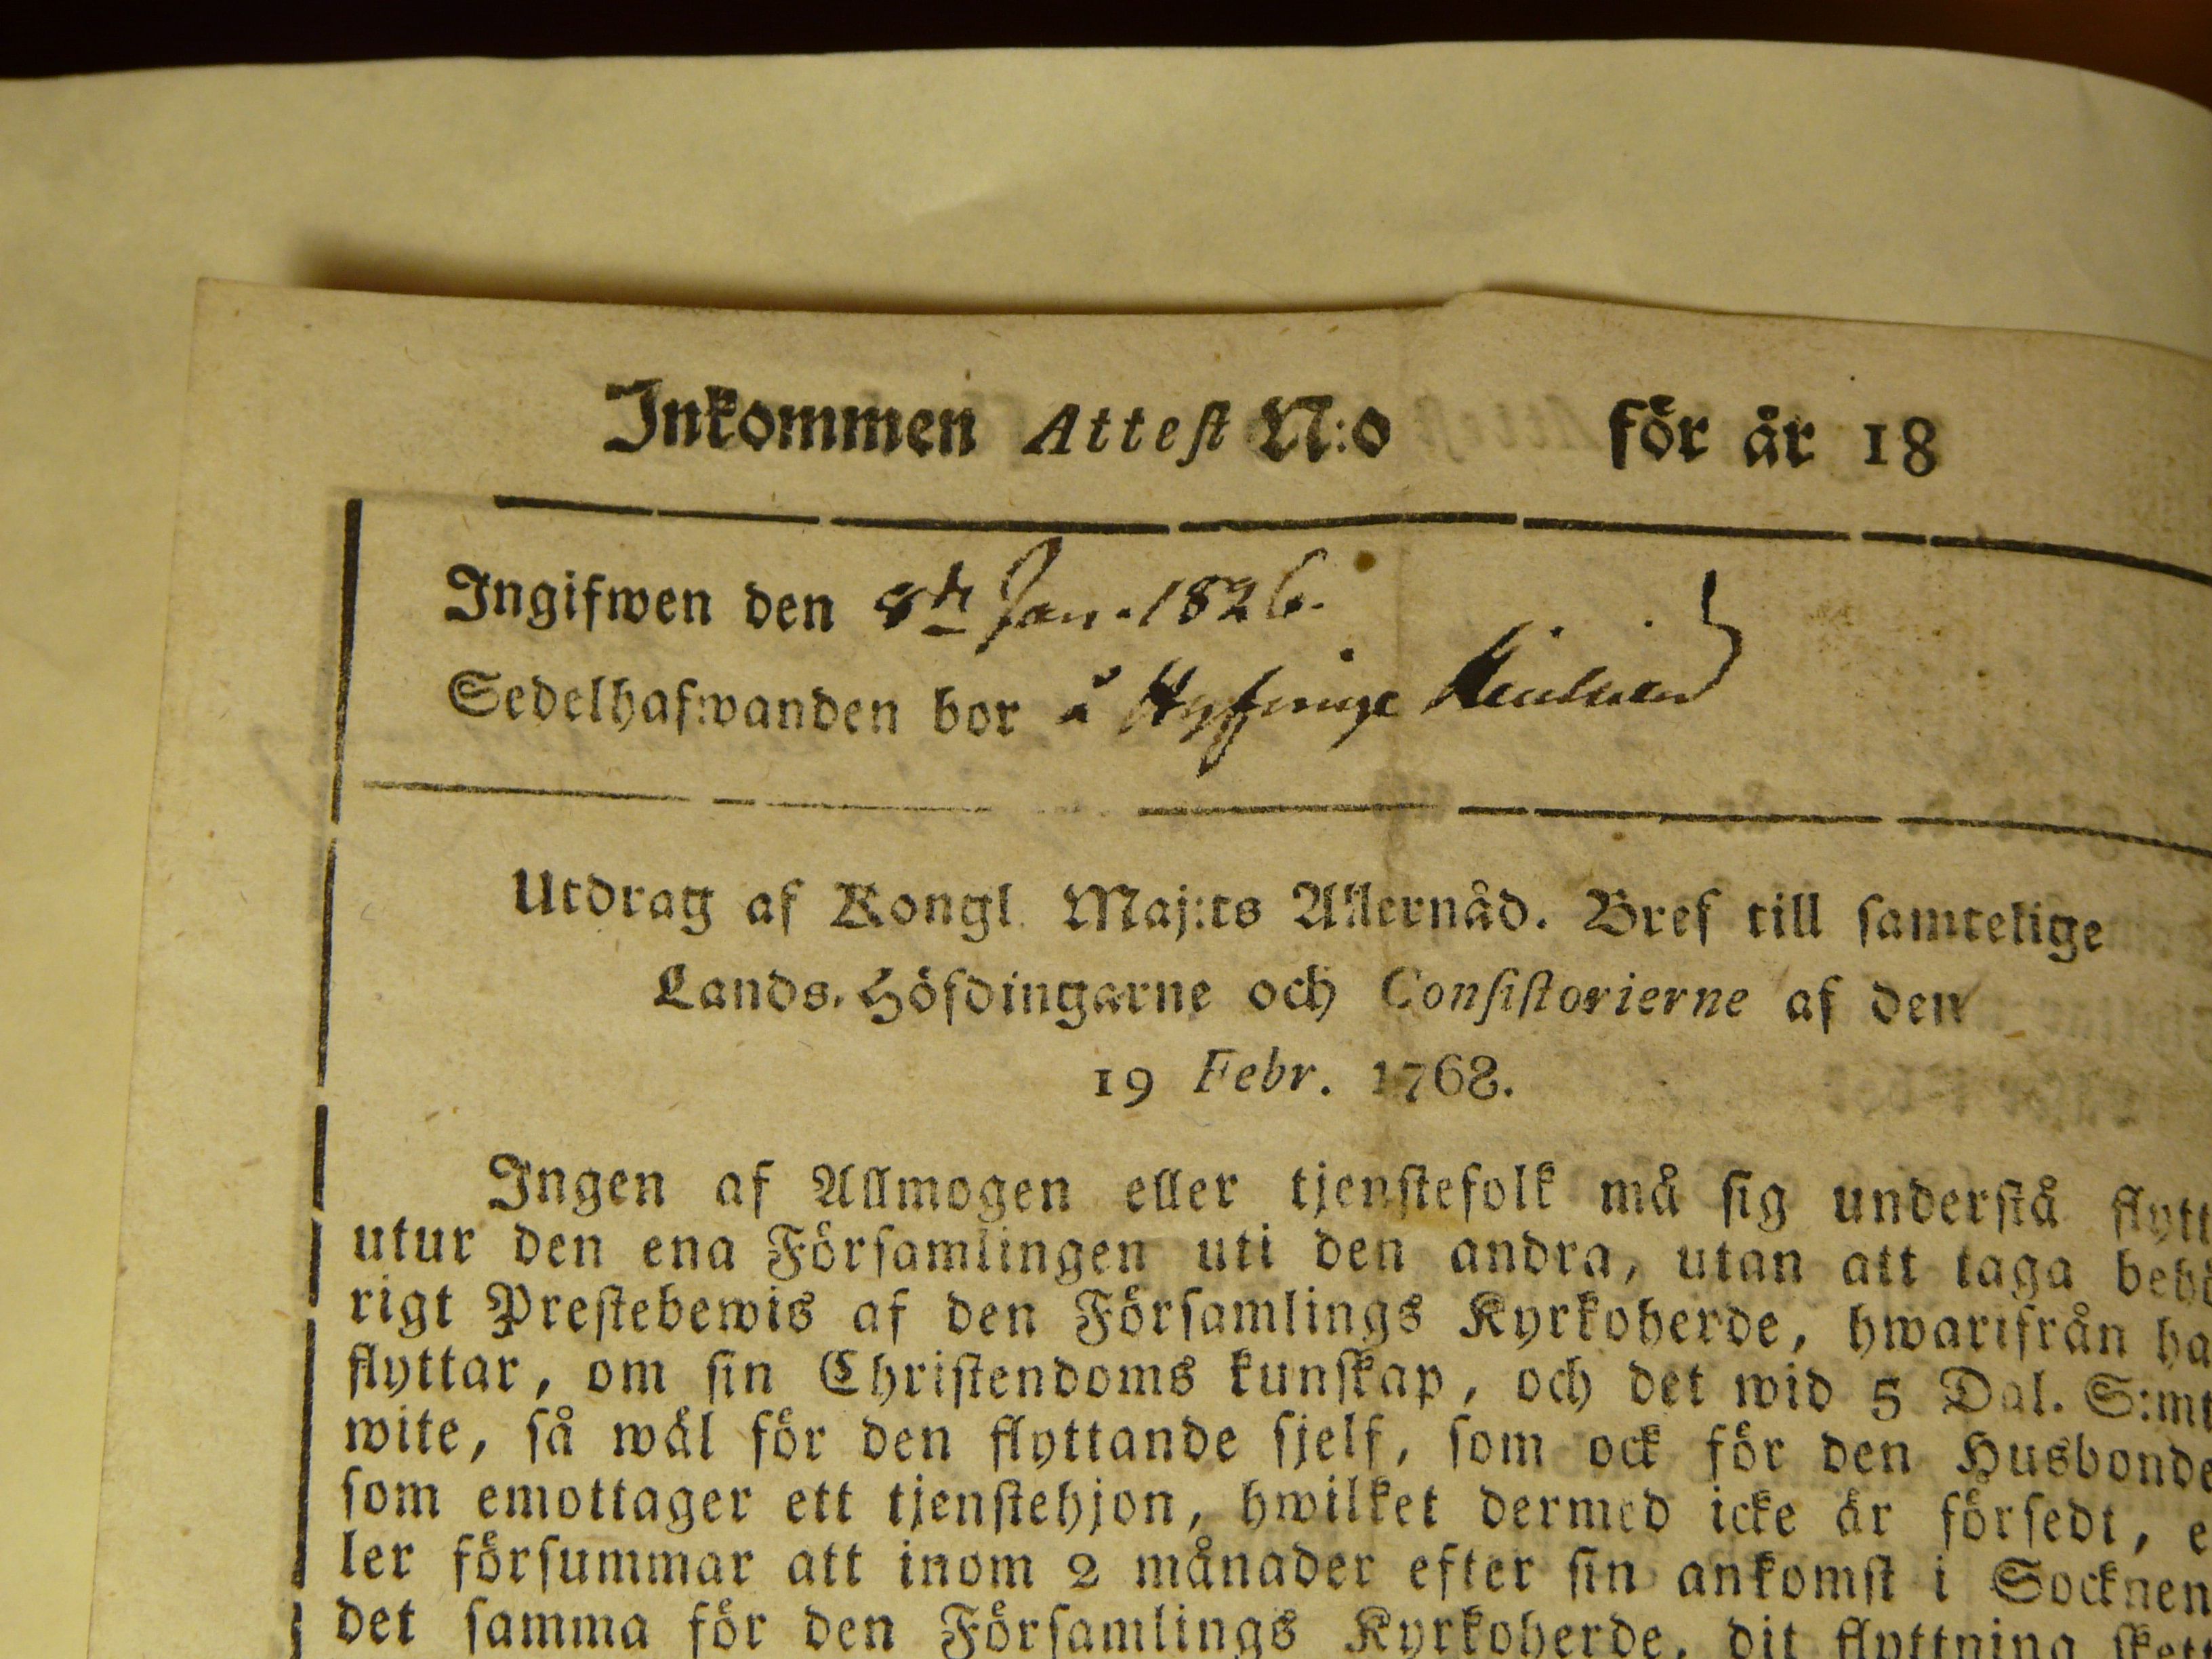 Inkommen Attest N:o för år 18
Ingifwen den 8de Jan. 1826.
Sedelhafwanden bor å
Utdrag af Kongl Maj:ts Allernåd. Bref till samtelige
Lands-Höfdingarne och Consistorierne af den
19 Febr. 1768.
Ingen af Allmogen eller tjenstefolk må sig understå flytt
utur den ena Församlingen uti den andra, utan att taga behö
rigt Prestebewis af den Församlings Kyrkoherde, hwarifrån ha
flyttar, om sin Christendoms kunskap, och det wid 5 Dal. S:mt
wite, så wäl för den flyttande sjelf, som ock för den Husbonde
som emottager ett tjenstehjon, hwilket dermed icke är försedt, e
ler försummar att inom 2 månader efter sin ankomst i Socknen
det samma för den Församlings Kyrkoherde, dit flyttning skett